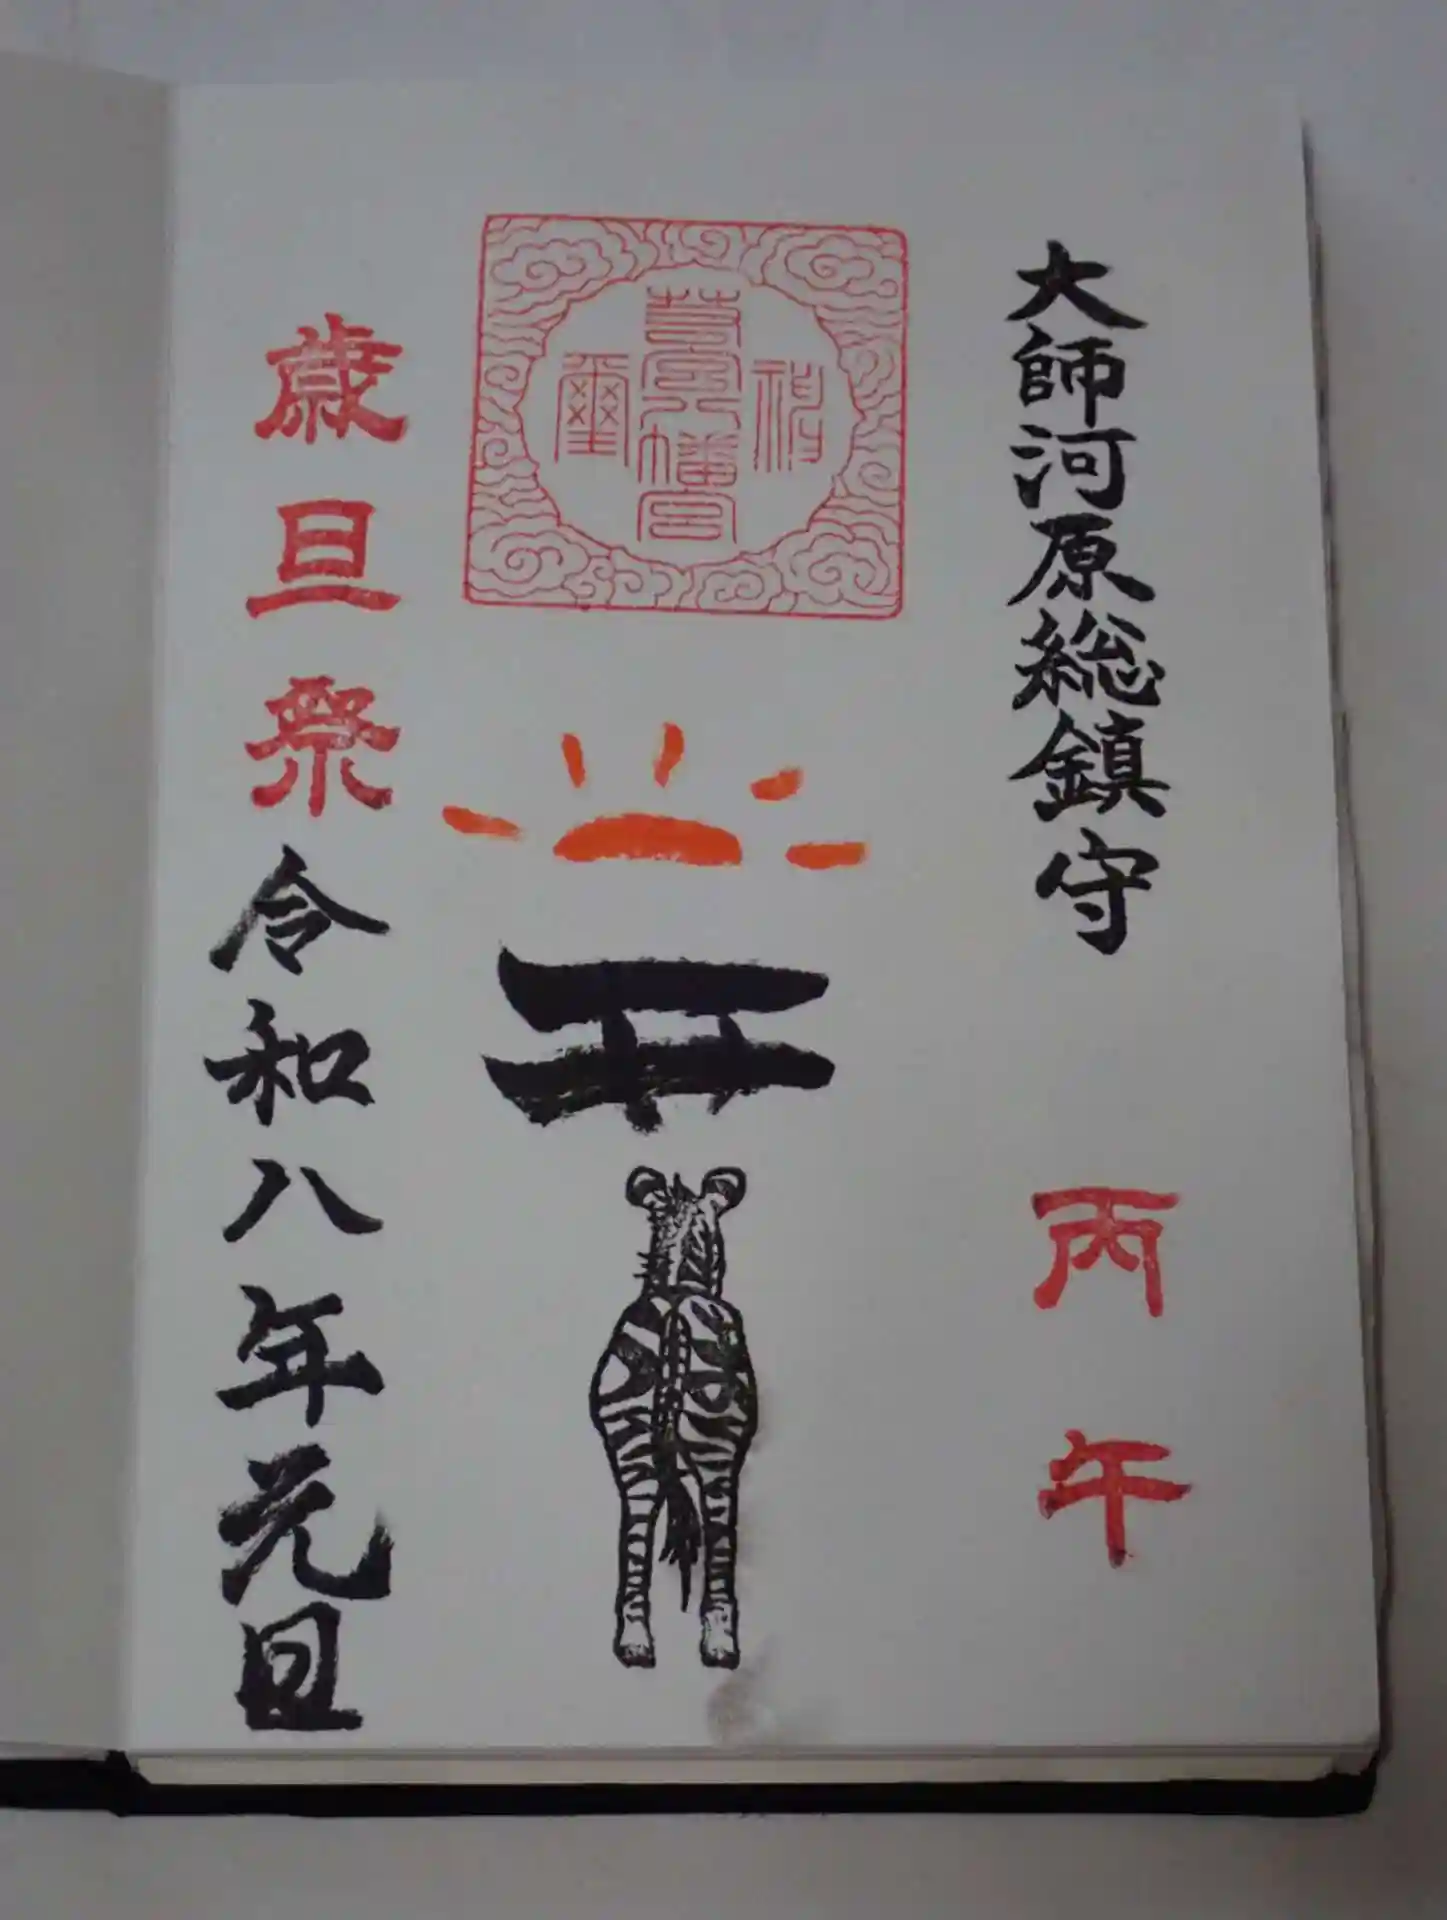 大師河原総鎮守
丙午
若宮八幡宮
神璽
歳旦祭
令和八年元旦